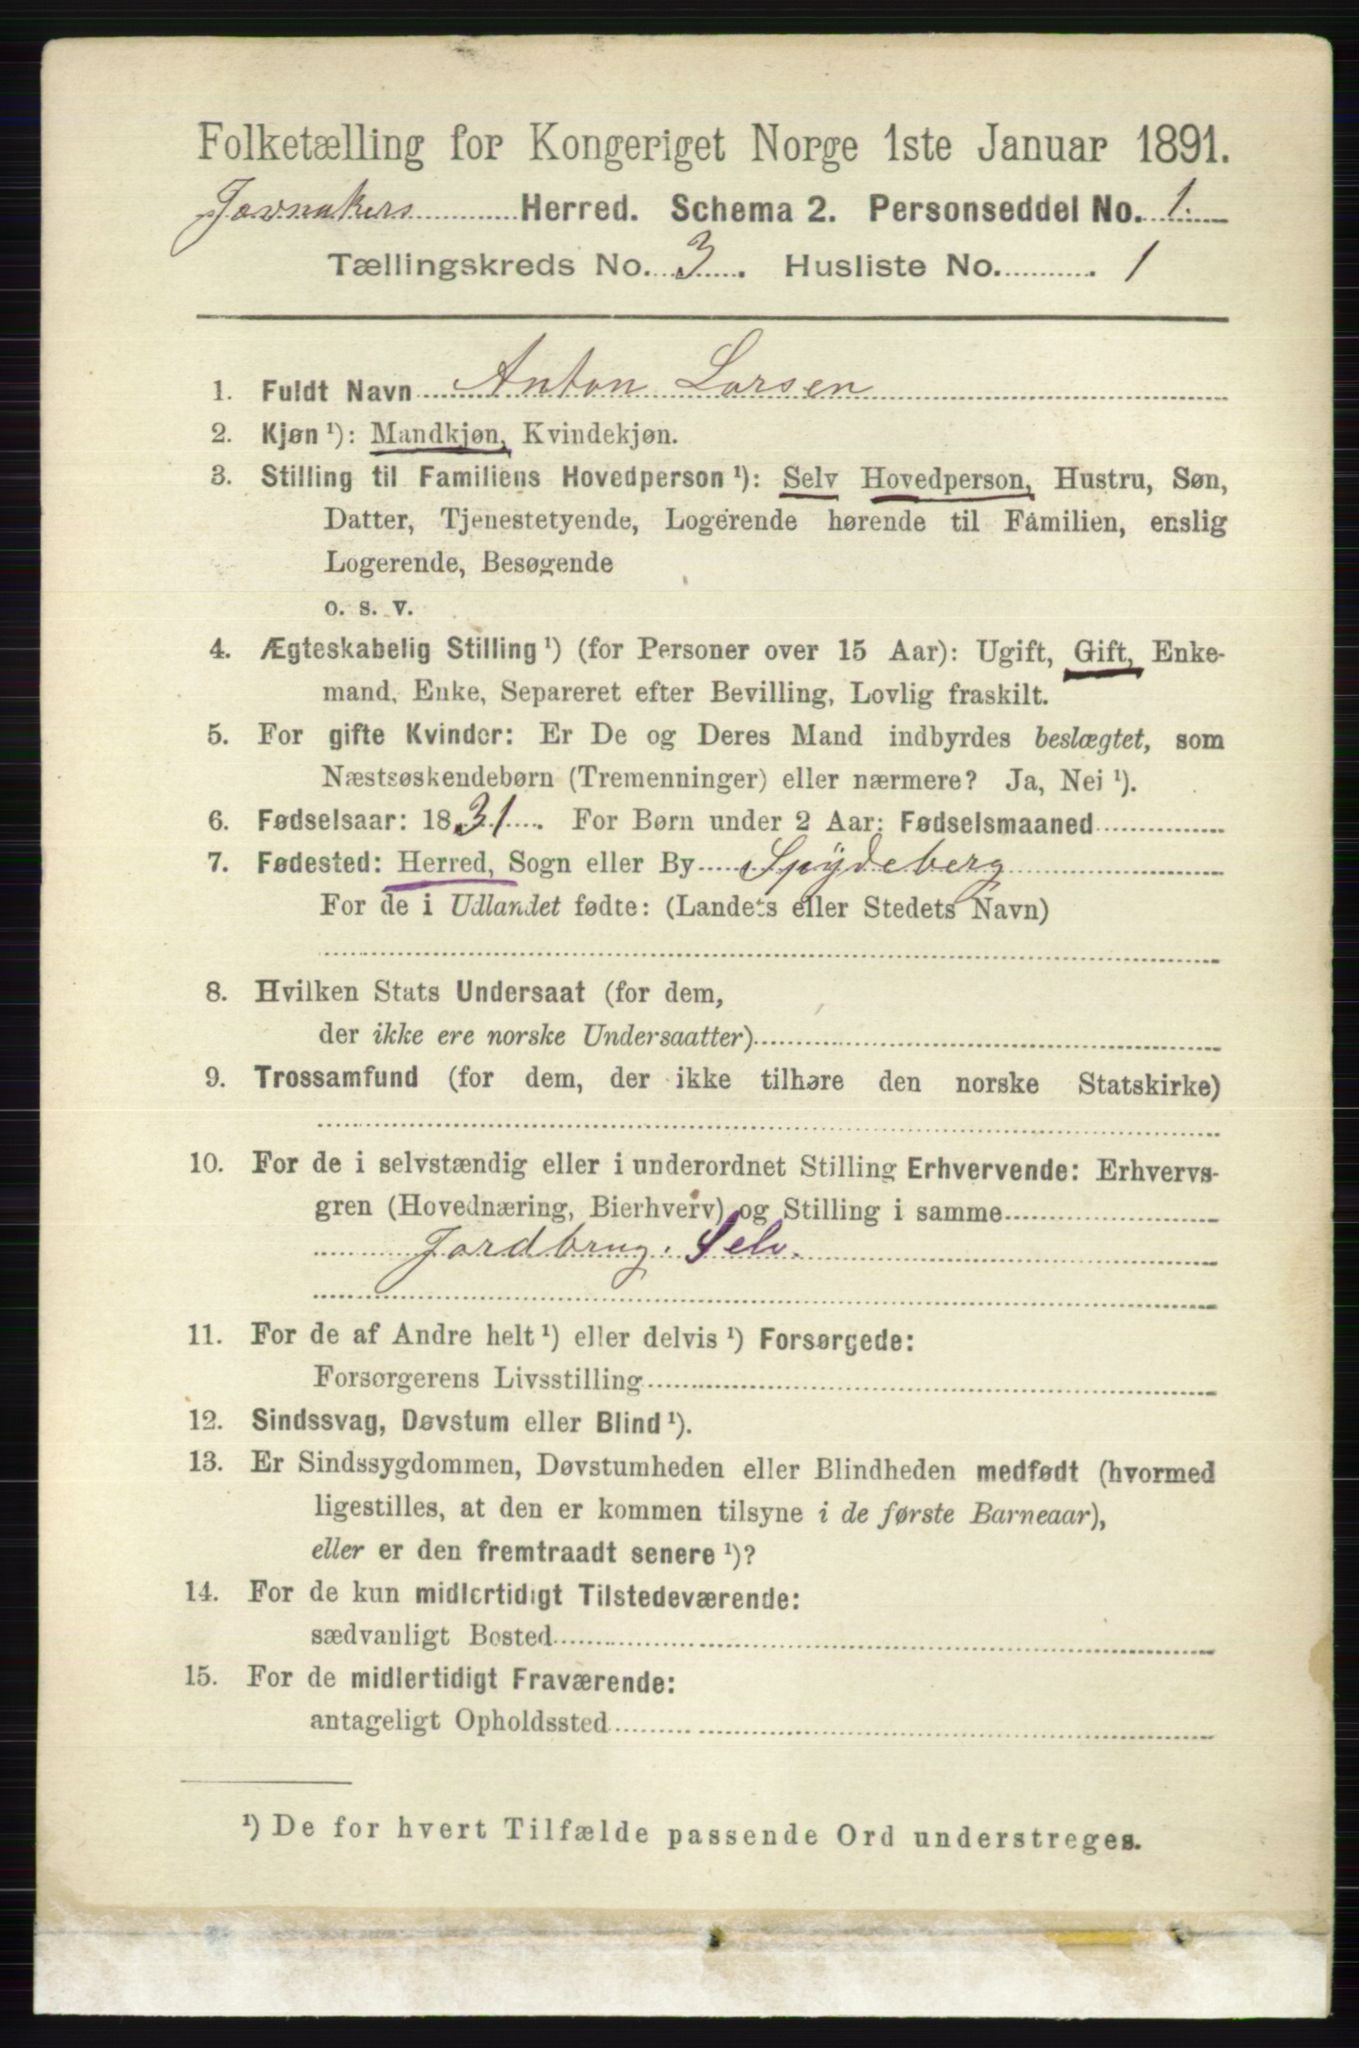 Folketælling for Kongeriget Norge 1ste Januar 1891.
Jevnakers Herred. Schema 2. Personseddel No. 1.
Tællingskreds No. 3. Husliste No. 1
1. Fuldt Navn Anton Larsen
2. Kjøn ¹): Mandkjøn, Kvindekjøn.
3. Stilling til Familiens Hovedperson ¹): Selv Hovedperson, Hustru, Søn,
Datter, Tjenestetyende, Logerende hørende til Familien, enslig
Logerende, Besøgende
o. s. v.
4. Ægteskabelig Stilling ¹) (for Personer over 15 Aar): Ugift, Gift, Enke-
mand, Enke, Separeret efter Bevilling, Lovlig fraskilt.
5. For gifte Kvinder: Er De og Deres Mand indbyrdes beslægtet, som
Næstsøskendebørn (Tremenninger) eller nærmere? Ja, Nei ¹).
6. Fødselsaar: 1831. For Børn under 2 Aar: Fødselsmaaned
7. Fødested: Herred, Sogn eller By Spydeberg
For de i Udlandet fødte: (Landets eller Stedets Navn)
8. Hvilken Stats Undersaat (for dem,
der ikke ere norske Undersaatter)
9. Trossamfund (for dem, der ikke tilhøre den norske Statskirke)
10. For de i selvstændig eller i underordnet Stilling Erhvervende: Erhvervs-
gren (Hovednæring, Bierhverv) og Stilling i samme
Jordbrug. Selv.
11. For de af Andre helt ¹) eller delvis ¹) Forsørgede:
Forsørgerens Livsstilling
12. Sindssvag, Døvstum eller Blind ¹).
13. Er Sindssygdommen, Døvstumheden eller Blindheden medfødt (hvormed
ligestilles, at den er kommen tilsyne i de første Barneaar),
eller er den fremtraadt senere ¹)?
14. For de kun midlertidigt Tilstedeværende:
sædvanligt Bosted
15. For de midlertidigt Fraværende:
antageligt Opholdssted
¹) De for hvert Tilfælde passende Ord understreges.